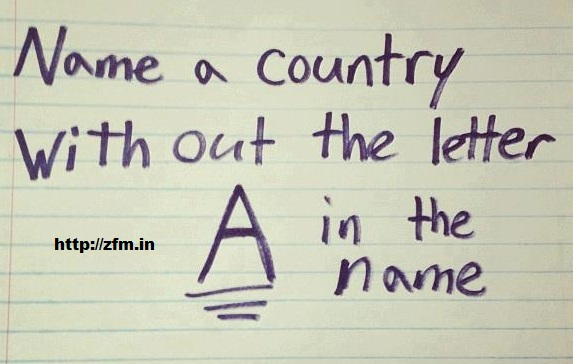 Name a country
without the letter
A in the
name
http://zfm.in